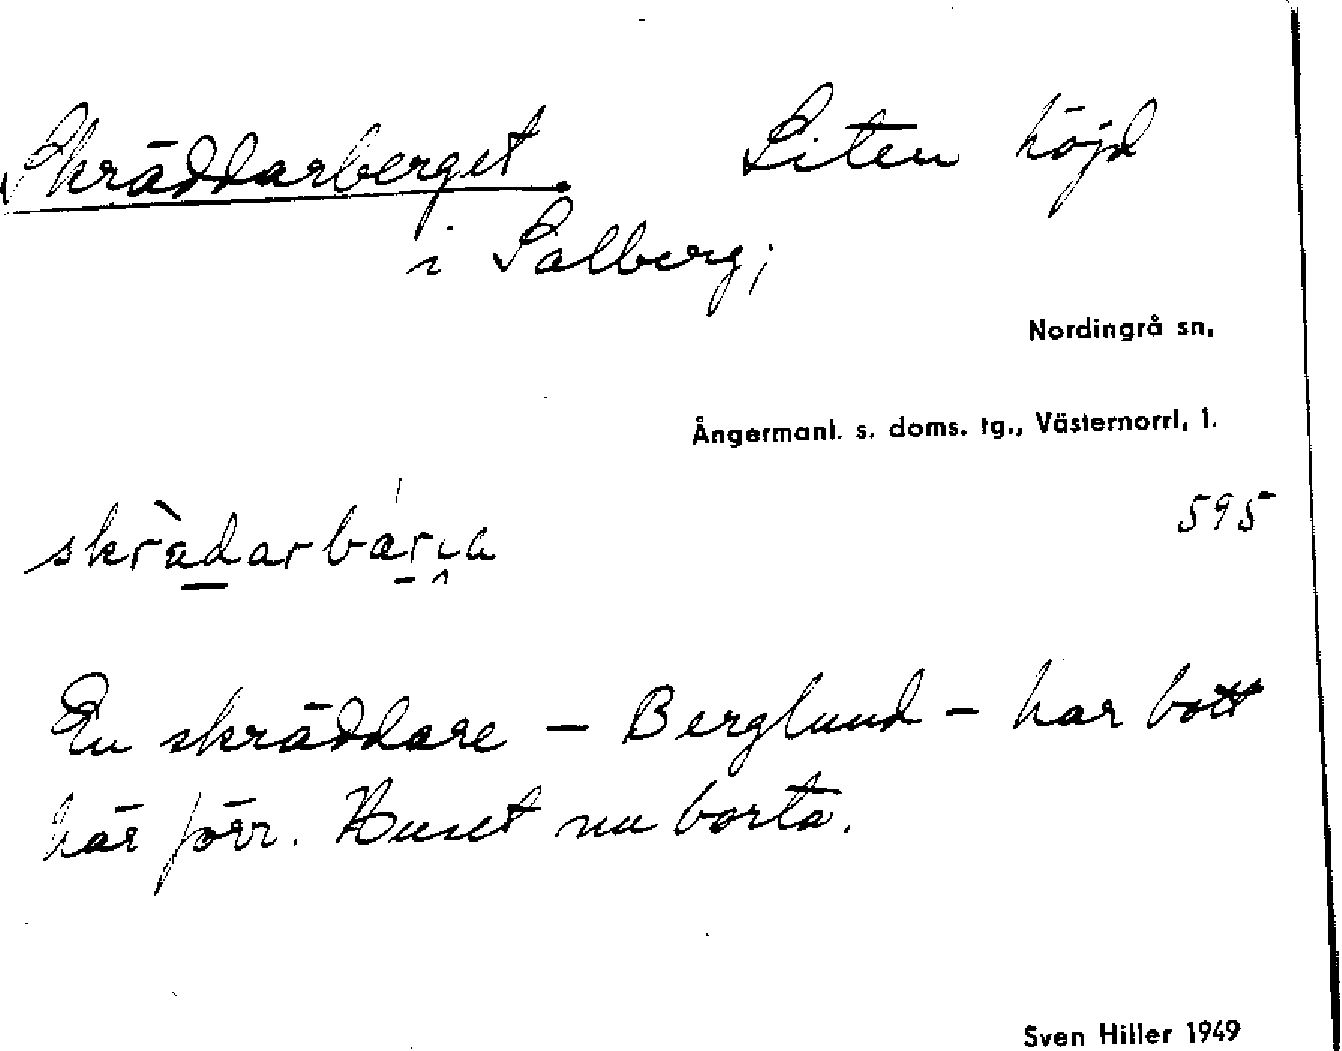 Skräddarberget. Liten höjd
i Salberg;
Nordingrå sn,
Ångermanl. s. doms. tg., Västernorrl, l.
595
En skräddare – Berglund – har bott
här förr. Huset nu borta.
Sven Hiller 1949